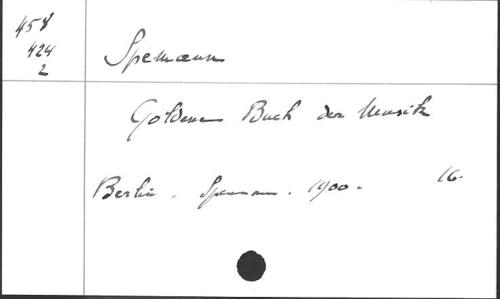 458
424
2
Spemann
Goldenes Buch der Musik
Berlin. Spemann. 1900. 16.